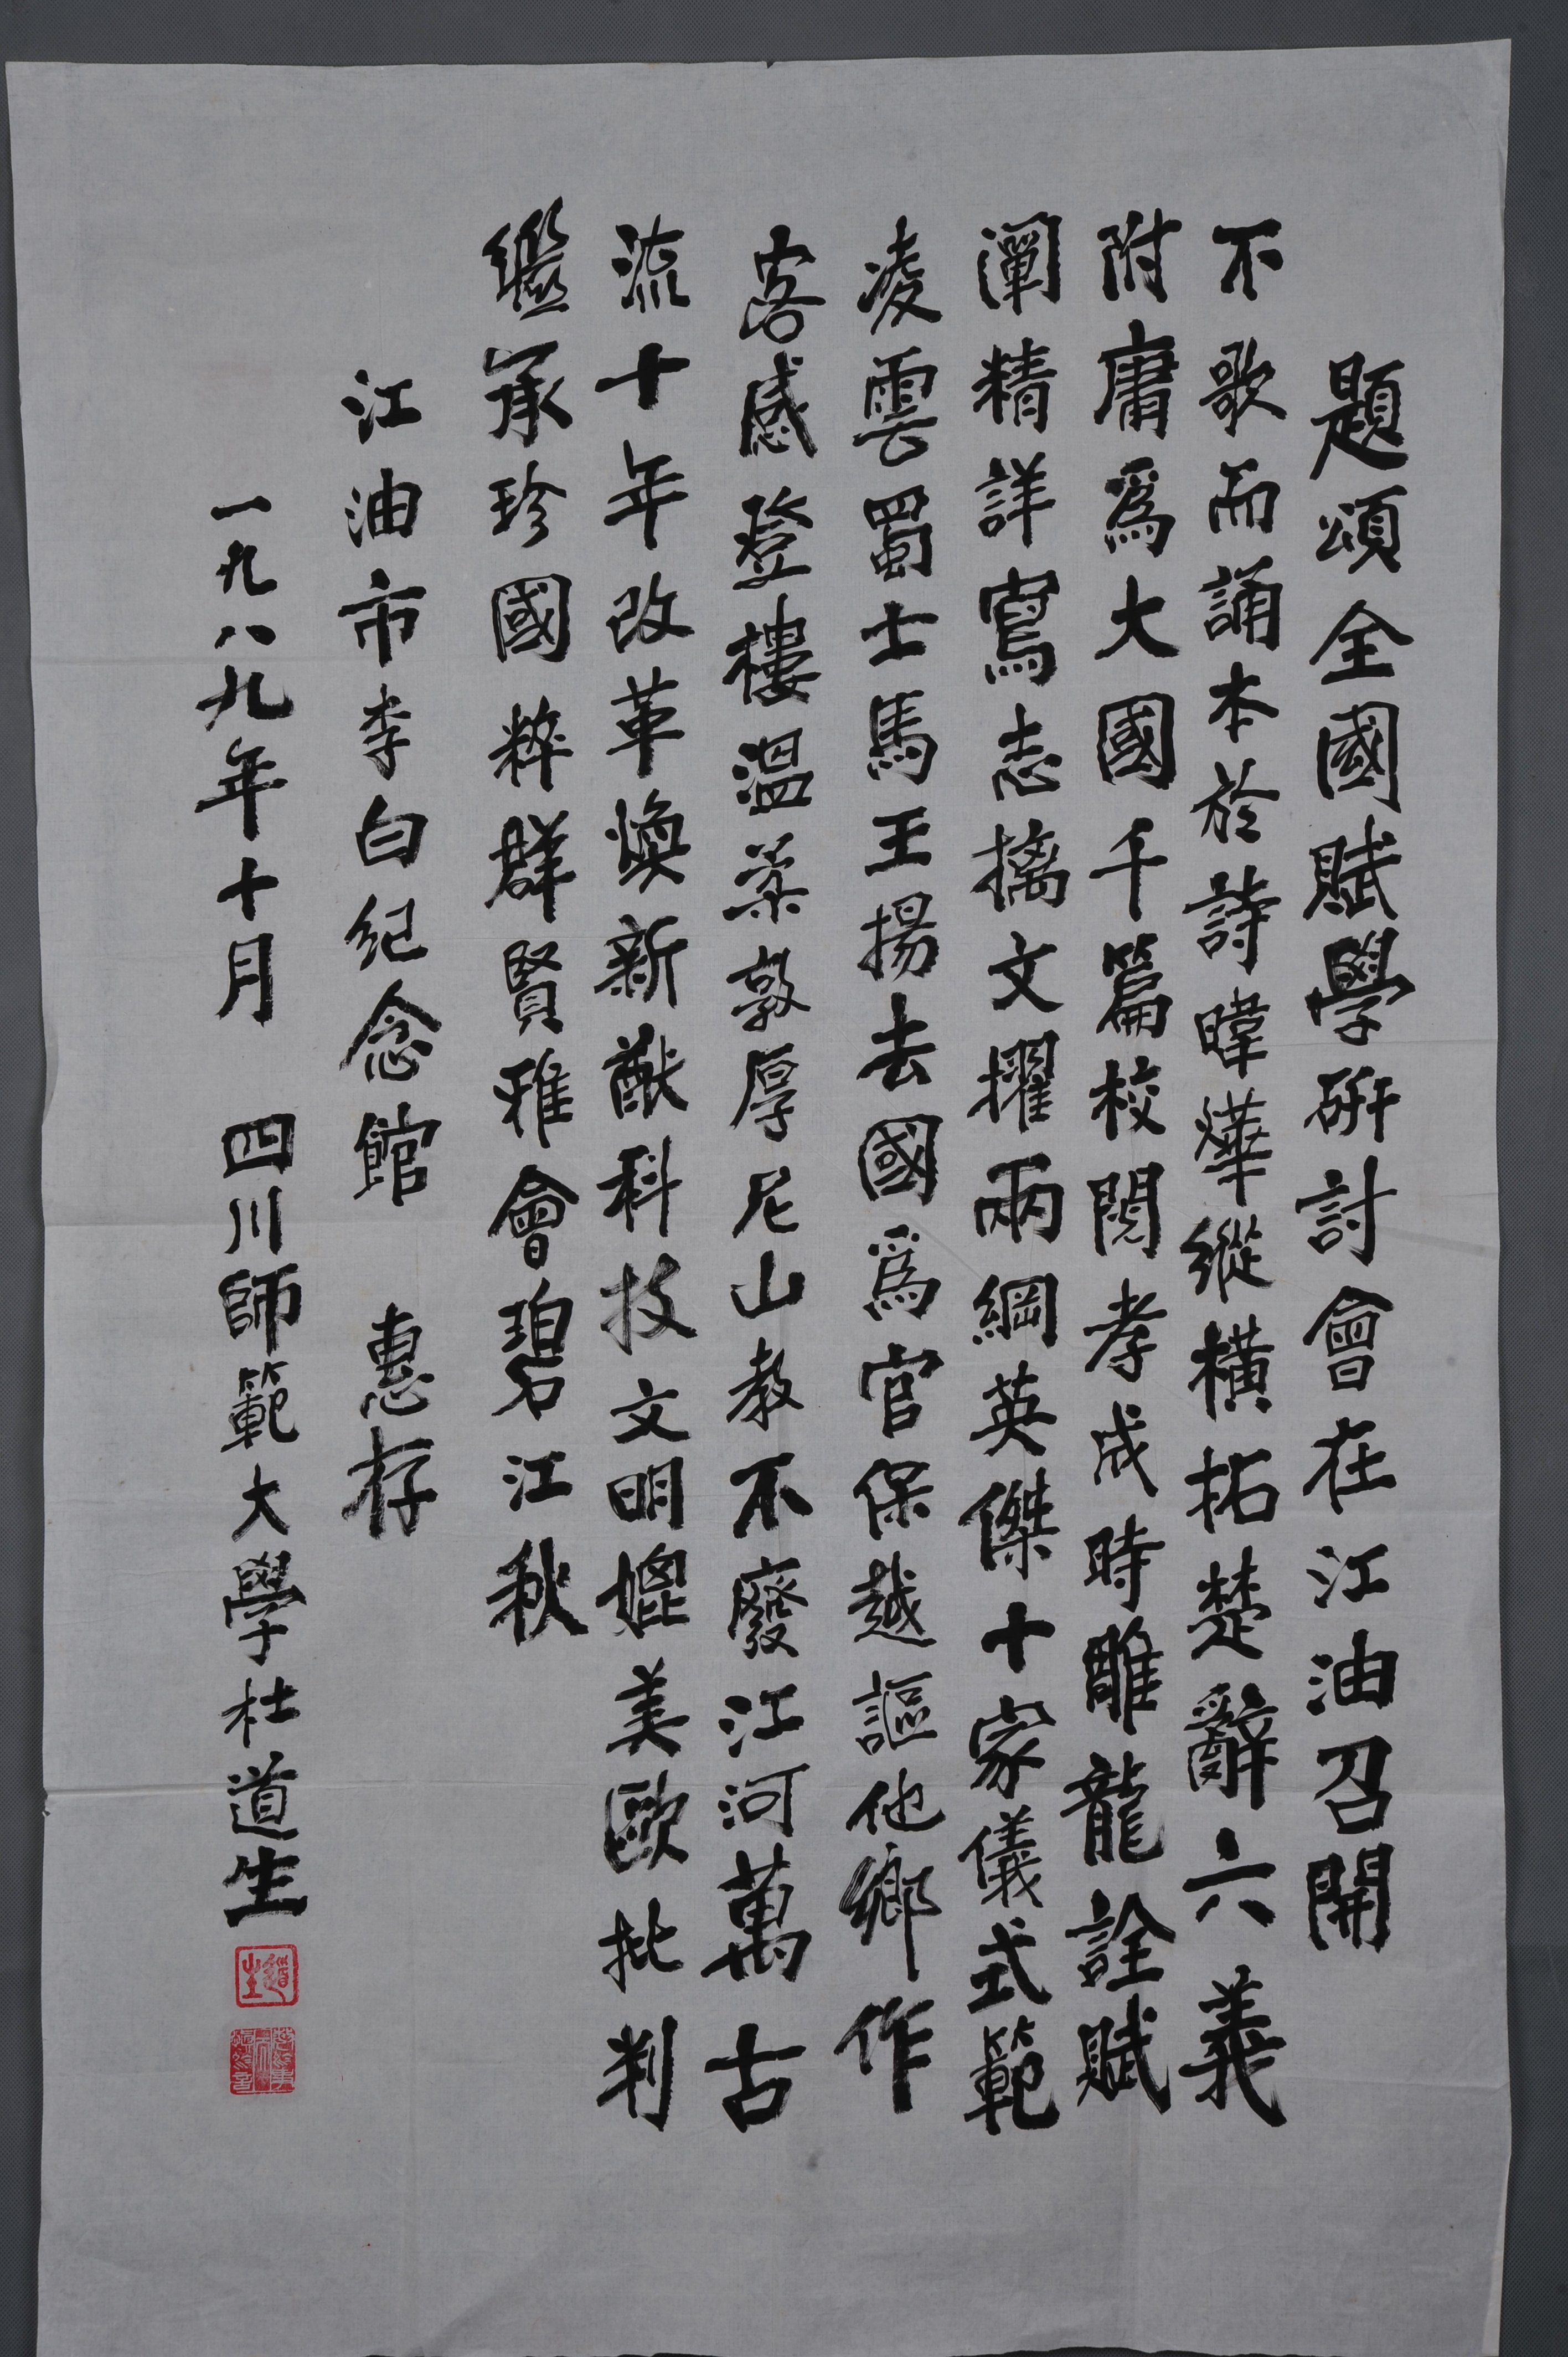 題頌全國賦學研討會在江油召開
不歌而誦本於詩暐燁縱橫拓楚辭六義
附庸爲大國千篇校閱孝成時雕龍詮賦
闡精詳寫志摛文擢兩綱英傑十家儀式範
凌雲蜀士馬王揚去國爲官保越謳他鄉作
客感登樓溫柔敦厚尼山教不廢江河萬古
流十年改革煥新猷科技文明媲美歐批判
繼承珍國粹群賢雅會碧江秋
江油市李白纪念館 惠存
一九八九年十月 四川師範大學杜道生